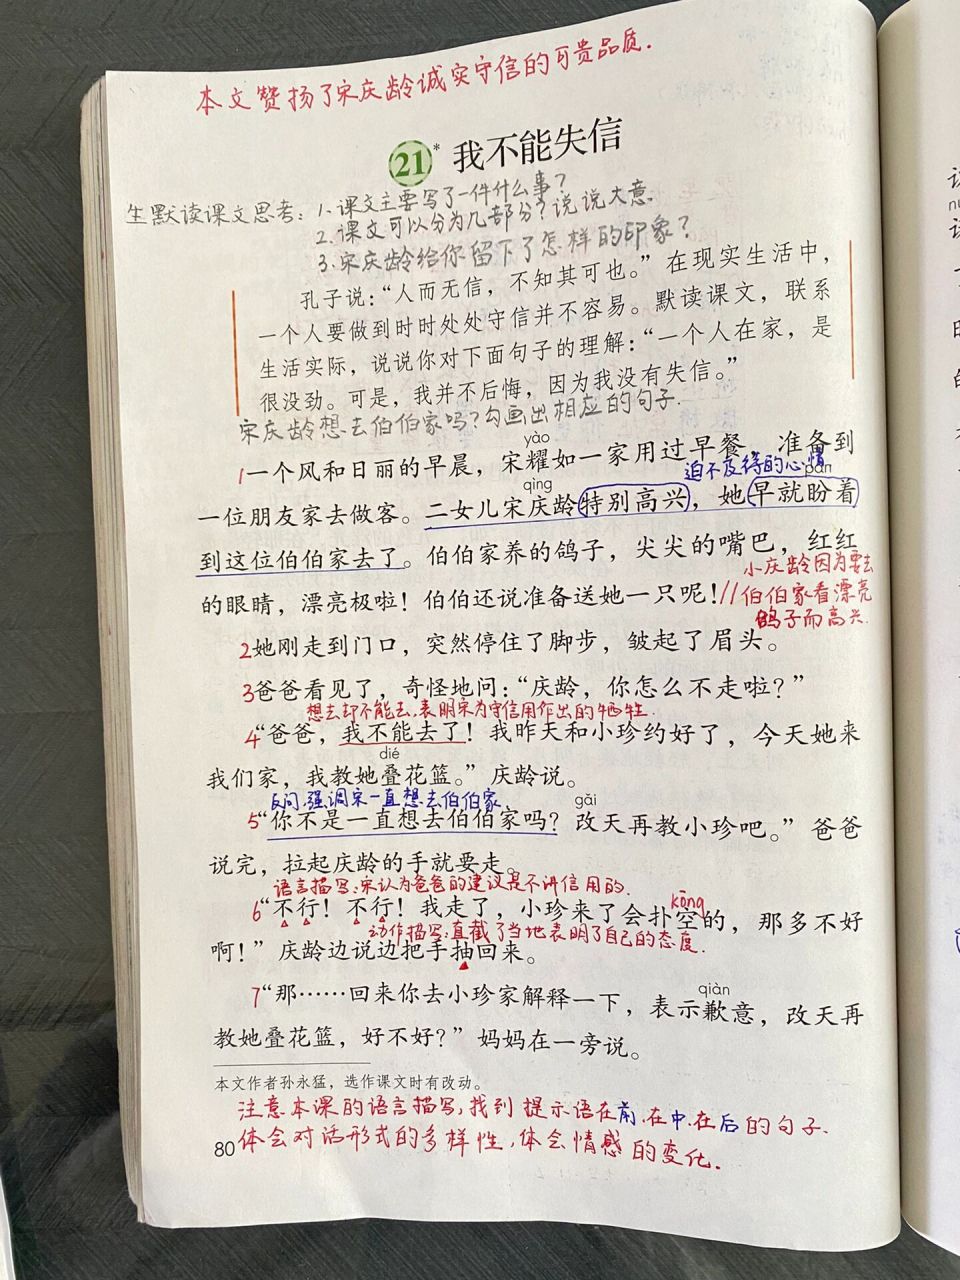 本文赞扬了宋庆龄诚实守信的可贵品质.
21* 我不能失信
生默读课文思考: 1. 课文主要写了一件什么事?
2. 课文可以分为几部分? 说说大意.
3. 宋庆龄给你留下了怎样的印象?
孔子说：“人而无信，不知其可也。”在现实生活中，
一个人要做到时时处处守信并不容易。默读课文，联系
生活实际，说说你对下面句子的理解：“一个人在家，是
很没劲。可是，我并不后悔，因为我没有失信。”
宋庆龄想去伯伯家吗? 勾画出相应的句子.
yào
1一个风和日丽的早晨，宋耀如一家用过早餐，准备到
迫不及待的心情
qìng pàn
一位朋友家去做客。二女儿宋庆龄特别高兴，她早就盼着
到这位伯伯家去了。伯伯家养的鸽子，尖尖的嘴巴，红红
小庆龄因为要去
的眼睛，漂亮极啦！伯伯还说准备送她一只呢！//伯伯家看漂亮
鸽子而高兴.
2她刚走到门口，突然停住了脚步，皱起了眉头。
3爸爸看见了，奇怪地问：“庆龄，你怎么不走啦？”
想去却不能去,表明宋为守信用作出的牺牲.
4“爸爸，我不能去了！我昨天和小珍约好了，今天她来
dié
我们家，我教她叠花篮。”庆龄说。
反问,强调宋一直想去伯伯家
gǎi
5“你不是一直想去伯伯家吗？改天再教小珍吧。”爸爸
说完，拉起庆龄的手就要走。
语言描写:宋认为爸爸的建议是不讲信用的.
kōng
6“不行！不行！我走了，小珍来了会扑空的，那多不好
动作描写:直截了当地表明了自己的态度.
啊！”庆龄边说边把手抽回来。
qiàn
7“那……回来你去小珍家解释一下，表示歉意，改天再
教她叠花篮，好不好？”妈妈在一旁说。
本文作者孙永猛，选作课文时有改动。
注意本课的语言描写,找到提示语在前.在中.在后的句子.
80 体会对话形式的多样性,体会情感的变化.